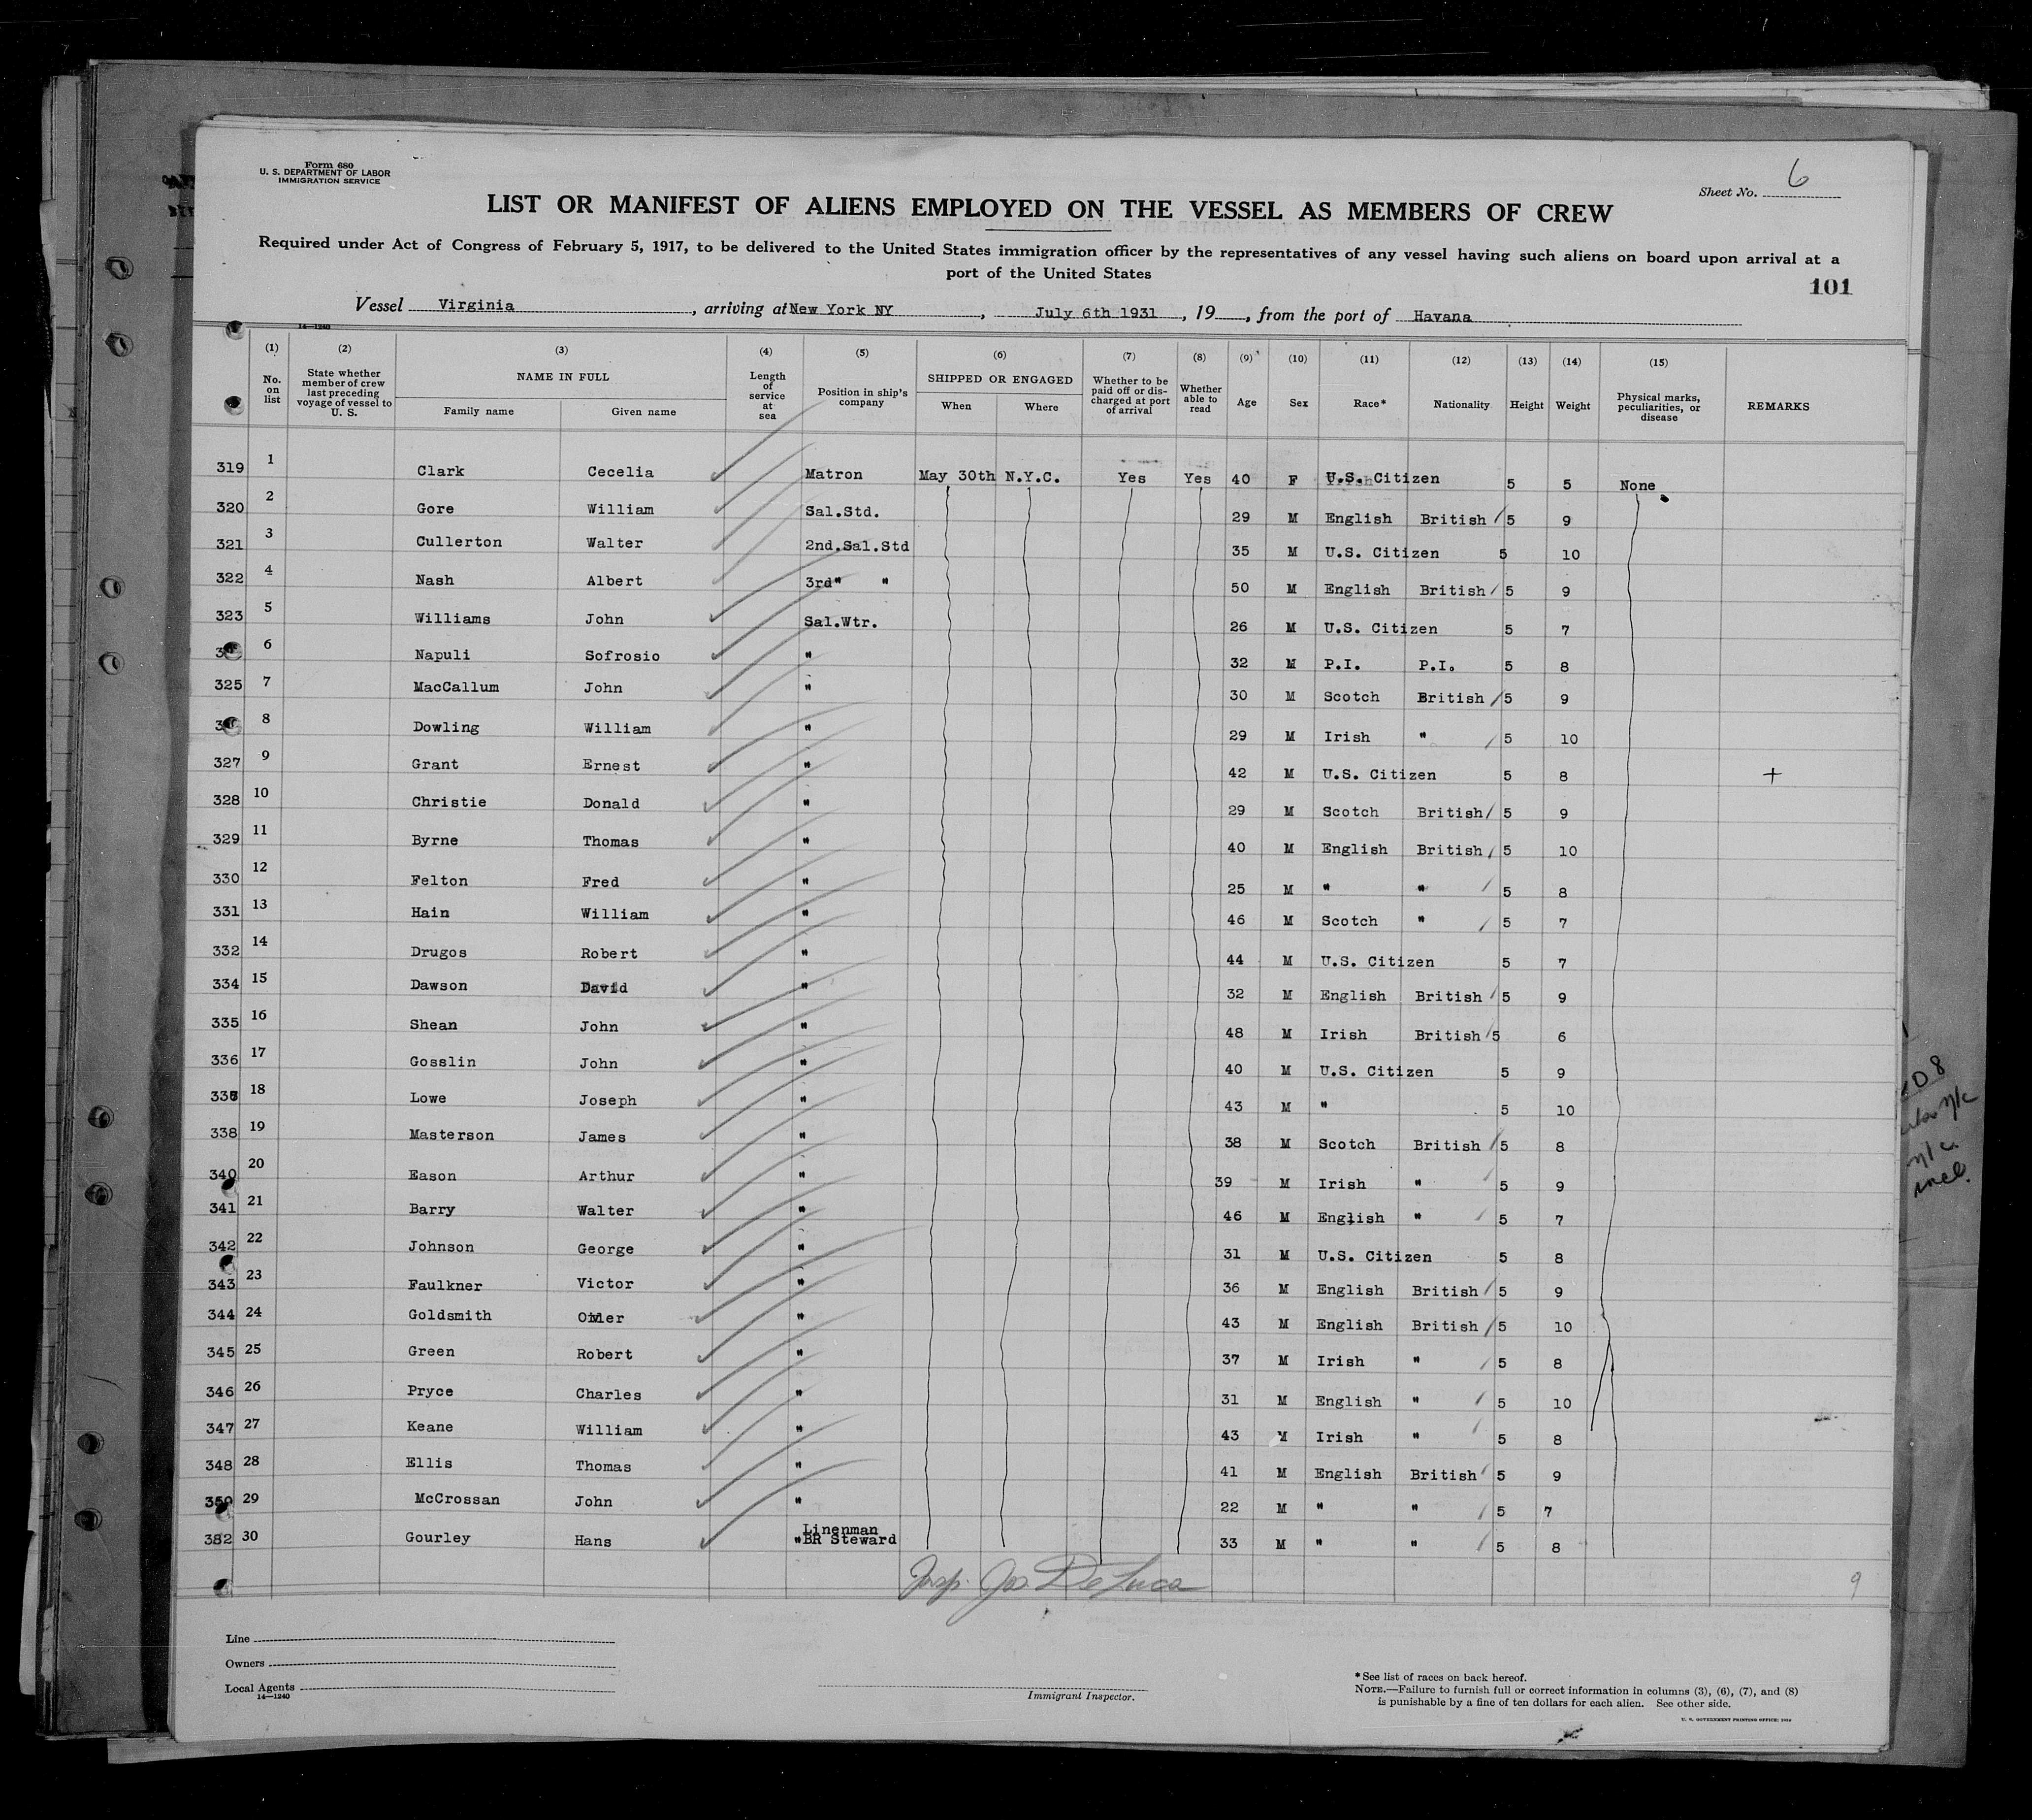 Form 680
U. S. DEPARTMENT OF LABOR
IMMIGRATION SERVICE
Sheet No. 6
LIST OR MANIFEST OF ALIENS EMPLOYED ON THE VESSEL AS MEMBERS OF CREW
Required under Act of Congress of February 5, 1917, to be delivered to the United States immigration officer by the representatives of any vessel having such aliens on board upon arrival at a
port of the United States
101
Vessel Virginia, arriving at New York NY, July 6th 1931, 19, from the port of Havana
14—1240
(1) (2) (3) (4) (5) (6) (7) (8) (9) (10) (11) (12) (13) (14) (15)
No. on list State whether member of crew last preceding voyage of vessel to U. S. NAME IN FULL Family name Given name Length of service at sea Position in ship's company SHIPPED OR ENGAGED When Where Whether to be paid off or discharged at port of arrival Whether able to read Age Sex Race* Nationality Height Weight Physical marks, peculiarities, or disease REMARKS
319 1 Clark Cecelia Matron May 30th N.Y.C. Yes Yes 40 F U.S. Citizen 5 5 None
320 2 Gore William Sal.Std. 29 M English British 5 9
321 3 Cullerton Walter 2nd.Sal.Std 35 M U.S. Citizen 5 10
322 4 Nash Albert 3rd" " 50 M English British 5 9
323 5 Williams John Sal.Wtr. 26 M U.S. Citizen 5 7
6 Napuli Sofrosio " 32 M P.I. P.I. 5 8
325 7 MacCallum John " 30 M Scotch British 5 9
8 Dowling William " 29 M Irish " 5 10
327 9 Grant Ernest " 42 M U.S. Citizen 5 8 +
328 10 Christie Donald " 29 M Scotch British 5 9
329 11 Byrne Thomas " 40 M English British 5 10
330 12 Felton Fred " 25 M " " 5 8
331 13 Hain William " 46 M Scotch " 5 7
332 14 Drugos Robert " 44 M U.S. Citizen 5 7
334 15 Dawson David " 32 M English British 5 9
335 16 Shean John " 48 M Irish British 5 6
336 17 Gosslin John " 40 M U.S. Citizen 5 9
18 Lowe Joseph " 43 M " 5 10
338 19 Masterson James " 38 M Scotch British 5 8
340 20 Eason Arthur " 39 M Irish " 5 9
341 21 Barry Walter " 46 M English " 5 7
342 22 Johnson George " 31 M U.S. Citizen 5 8
343 23 Faulkner Victor " 36 M English British 5 9
344 24 Goldsmith " 43 M English British 5 10
345 25 Green Robert " 37 M Irish " 5 8
346 26 Pryce Charles " 31 M English " 5 10
347 27 Keane William " 43 M Irish " 5 8
348 28 Ellis Thomas " 41 M English British 5 9
350 29 McCrossan John " 22 M " " 5 7
382 30 Gourley Hans " Linenman BR Steward 33 M " " 5 8
Insp. Jos. De Luca
9
Line
Owners
Local Agents
14—1240
Immigrant Inspector.
*See list of races on back hereof.
NOTE.—Failure to furnish full or correct information in columns (3), (6), (7), and (8)
is punishable by a fine of ten dollars for each alien. See other side.